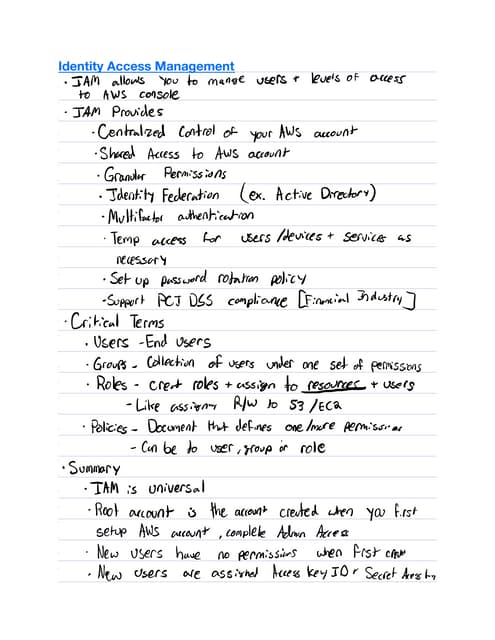 Identity Access Management
· IAM allows you to mange users + levels of access
to AWS console
· IAM Provides
· Centralized Control of your AWS account
· Shared Access to AWS account
· Granular Permissions
· Identity Federation (ex. Active Directory)
· Multifactor authentication
· Temp access for users/devices + services as
necessary
· Set up password rotation policy
· Support PCI DSS compliance [Financial Industry]
· Critical Terms
· Users - End Users
· Groups - Collection of users under one set of permissions
· Roles - creat roles + assign to resources + users
- Like assigning R/W to S3/EC2
· Policies - Document that defines one/more permissions
- Can be to user, group or role
· Summary
· IAM is universal
· Root account is the account created when you first
setup AWS account, complete Admin Access
· New Users have no permissions when first
· New Users are assigned Access Key ID + Secret Access Key